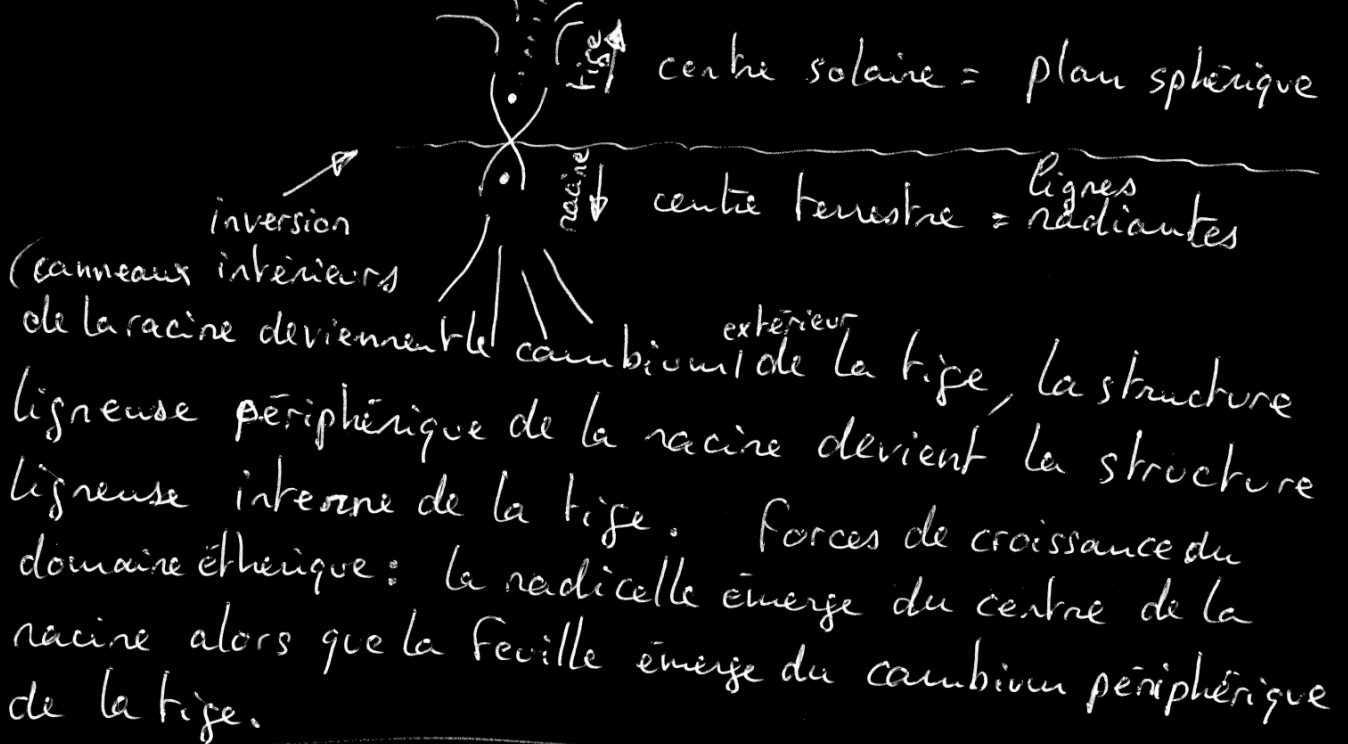 tige
centre solaire = plan sphérique
racine
lignes
centre terrestre = radiantes
inversion
(canneaux intérieurs
extérieur
de la racine deviennent le cambium de la tige, la structure
ligneuse périphérique de la racine devient la structure
ligneuse interne de la tige. Forces de croissance du
domaine éthérique : la radicelle émerge du centre de la
racine alors que la feuille émerge du cambium périphérique
de la tige.